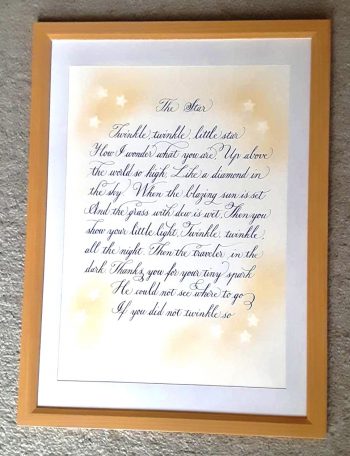 The Star
Twinkle, twinkle, little star
How I wonder what you are. Up above
the world so high, Like a diamond in
the sky. When the blazing sun is set
And the grass with dew is wet, Then you
show your little light, Twinkle, twinkle,
all the night. Then the traveler in the
dark Thanks you for your tiny spark
He could not see where to go
If you did not twinkle so